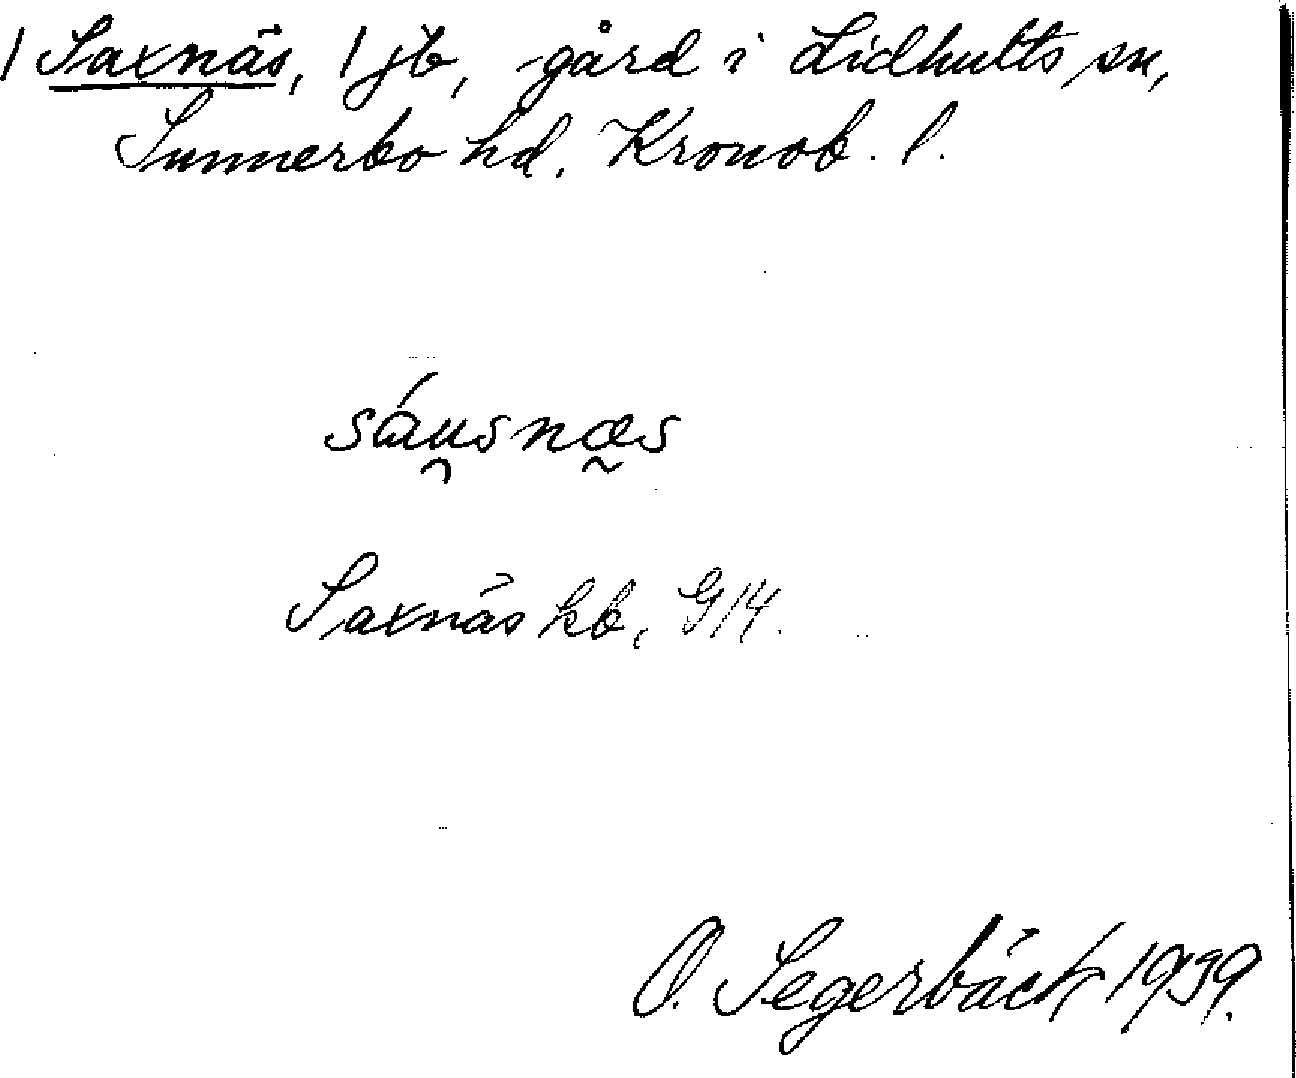 1 Saxnäs, 1 jb, gård i Lidhults sn,
Sunnerbo hd. Kronob. l.
sáu̯snæ̰s
Saxnäs kb, G14.
O. Segerbäck 1939.